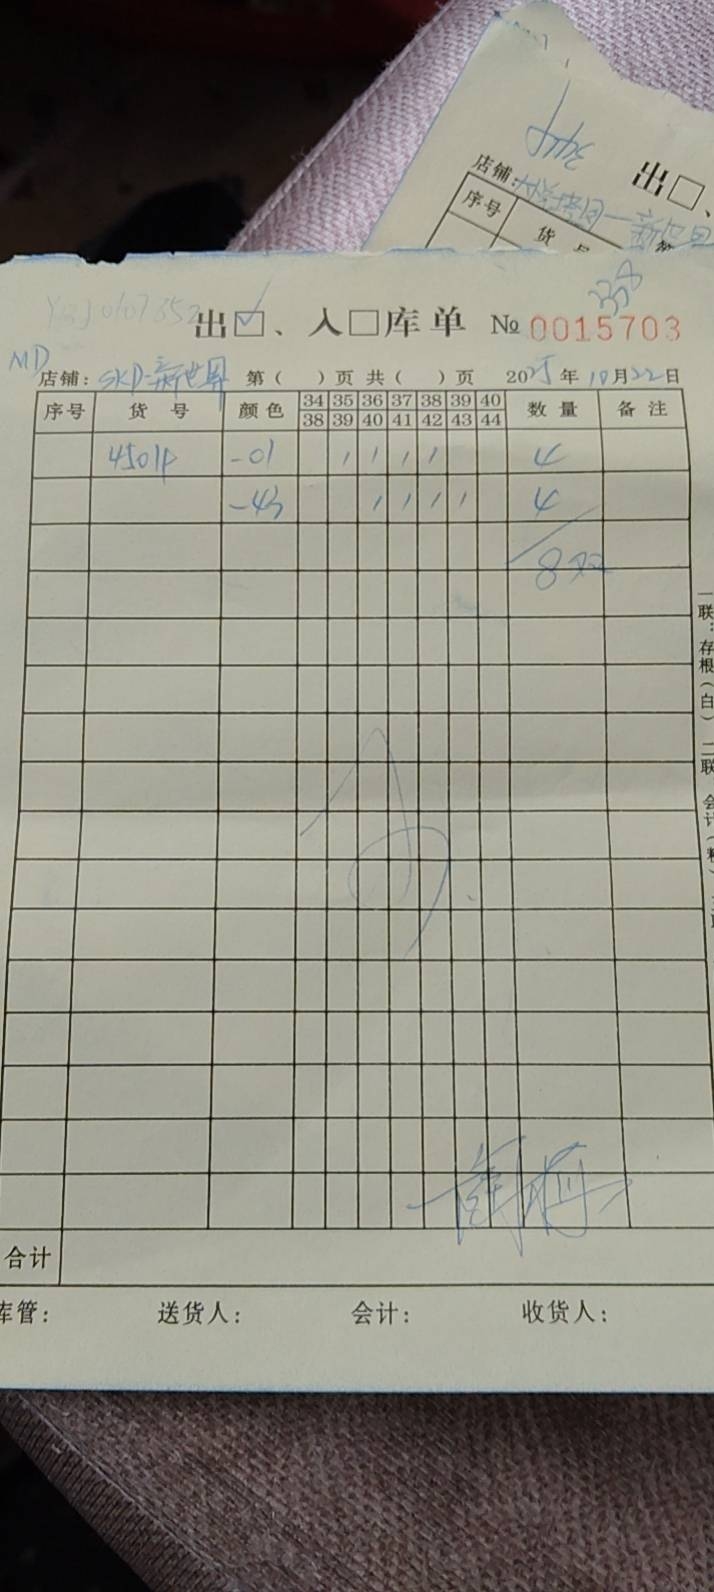 店铺:
出□、
序号 货 号
出☑、入□库单 № 0015703
MD
店铺: SKD-新世界 第( )页 共( )页 2025年10月22日
序号 货 号 颜色 34 35 36 37 38 39 40 数量 备注
38 39 40 41 42 43 44
-01 / / / / 4
-43 / / / / 4
8双
合计
库管: 送货人: 会计: 收货人:
一联:存根(白) 二联